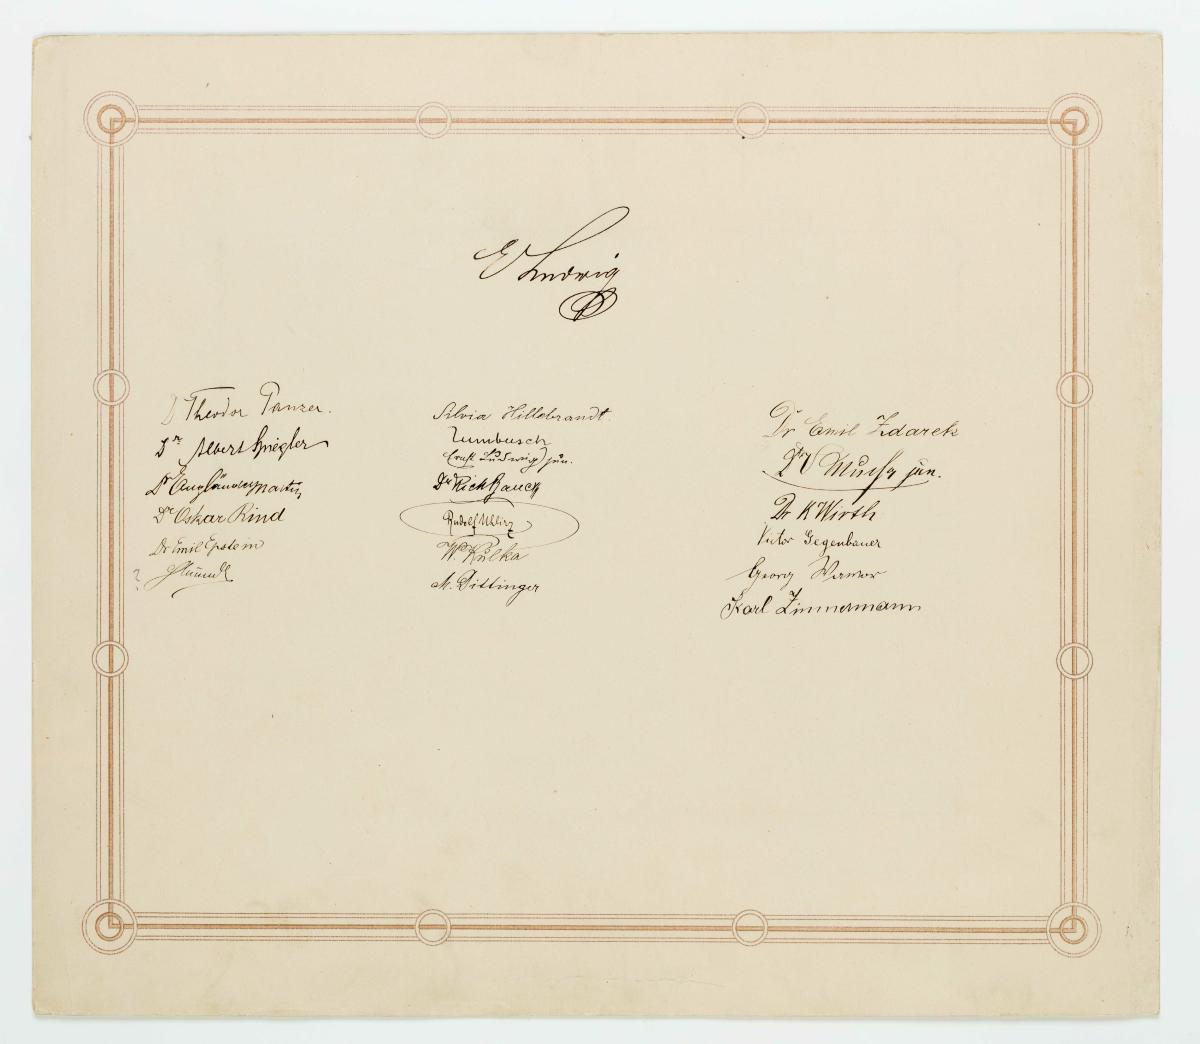 E Ludwig
Dr Theodor Panzer.
Dr Albert Spiegler
Dr Engländer Martin
Dr Oskar Rind
Dr Emil Epstein
?
Silvia Hillebrandt.
Zumbusch
Ernst Ludwig jun.
Dr Rich Bauch
Rudolf Uhlirz
W. Kulka
M. Dittinger
Dr Emil Zdarek
Dr V Mucha jun.
Dr K Wirth
Victor Gegenbauer
Georg
Karl Zimmermann